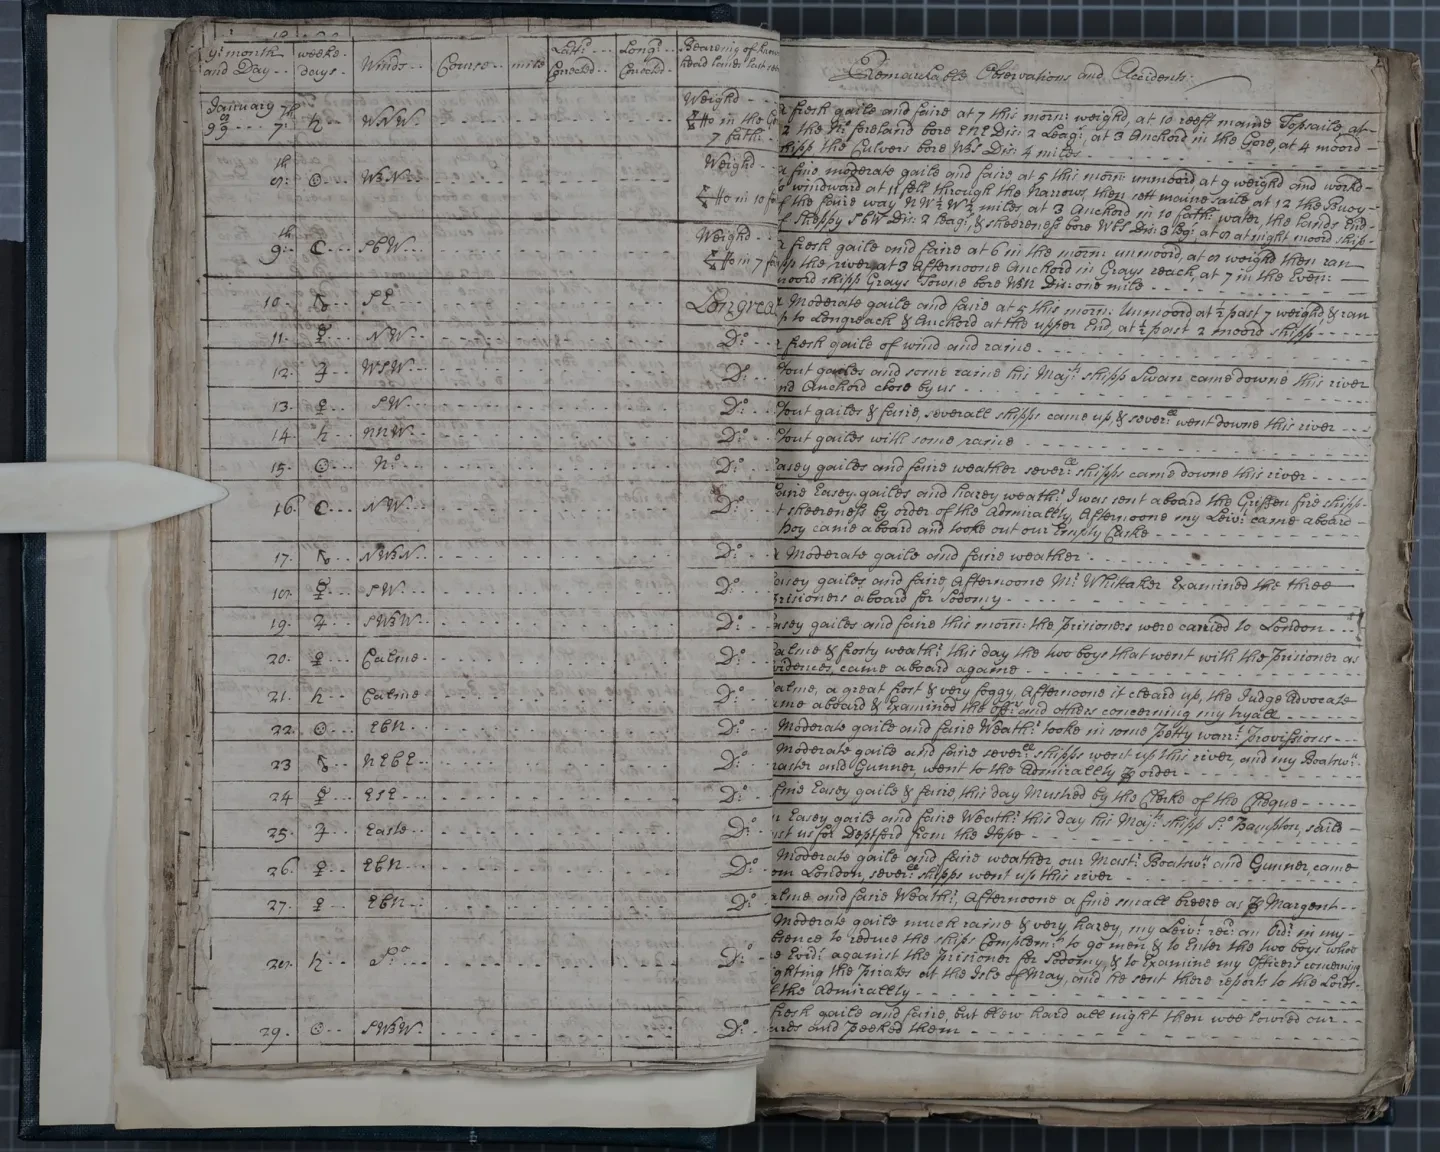 ye: month and Day weeke days Winds Course mile Latt: Corected Long: Corected Bearing of
Remarkable Observations and Accidents:
January 7th 99 7 ♄ WNW Weighd
fresh gaile and faire at 7 this morn: weighd, at 10 reeft maine Topsaile, at
2 the No: foreland bore ENE Dis: 2 Leag:, at 3 Anchord in the Gore, at 4 moord
7 fath:
shipp the Culvers bore WbS Dis: 4 miles
8th ☉ WbN Weighd
a fine moderate gaile and faire at 5 this morn: unmoord at 9 weighd and workd
to windward at 11 fell through the Narrows, then sett maine saile at 12 the Buoy
of the faire way NW½W ½ miles, at 3 Anchord in 10 fath: water, the lands End
of Sheppy SbW Dis: 2 leag:, & sheereness bore WbS Dis: 3 leg:, at 8 at night moord ship
9th ☾ SbW Weighd
fresh gaile and faire at 6 in the morn: unmoord, at 8 weighd then ran
upp the river, at 3 Afternoone Anchord in Grays reach, at 7 in the Even:
moord shipp Grays Towne bore WbN Dis: one mile
10 ♂ SE Longreach
Moderate gaile and faire at 5 this morn: Unmoord at ½ past 7 weighd & ran
up to Longreach & Anchord at the upper End, at ½ past 2 moord shipp
11 ☿ NW Do:
fresh gaile of wind and raine
12 ♃ WSW Do:
stout gailes and some raine his Maj:ts shipp Swan came downe this river
and Anchord close by us
13 ♀ SW Do:
stout gailes & faire, severall shipps came up, & severll went downe this river
14 ♄ NNW Do:
stout gailes with some raine
15 ☉ No: Do:
Easey gailes and faire weather severll shipps came downe this river
16 ☾ NW Do:
faire Easey gailes and hazey weath:r I was sent aboard the Griffen fire shipp
at sheereness by order of the Admirallty, Afternoone my Leivt: came aboard
hoy came aboard and tooke out our Empty Caske
17 ♂ NWbN Do:
a Moderate gaile and faire weather
18 ☿ SW Do:
Easey gailes and faire, Afternoone Mr: Whittaker Examined the three
Prisioners aboard for Sodomy
19 ♃ SWbW Do:
Easey gailes and faire this morn: the prisioners were carried to London
20 ♀ Calme Do:
Calme & frosty weath:r this day the two boys that went with the Prisioner as
Evidences, came aboard againe
21 ♄ Calme Do:
Calme, a great frost & very foggy, Afternoone it cleard up, the Judge Advocate
came aboard & Examined the Off:rs and others concerning my tryall
22 ☉ EbN Do:
Moderate gaile and faire Weath:r tooke in some Petty warr:t Provissions
23 ♂ NEbE Do:
Moderate gaile and faire severll shipps went up this river, and my Boatsw:n
master and Gunner, went to the Admirallty ⅌ order
24 ☿ ESE Do:
fine Easey gaile & faire, this day Mustred by the Clerke of the Cheque
25 ♃ Easte Do:
an Easey gaile and faire Weath:r this day his Maj:ts shipp So: Hampton, saild
past us for Deptford from the Hope
26 ♀ EbN Do:
Moderate gaile and faire weather, our Mast:r Boatsw:n and Gunner, came
from London, severll shipps went up this river
27 ♀ EbN Do:
Calme and faire Weath:r, Afternoone a fine small breeze as ⅌ Margent
28 ♄ So: Do:
Moderate gaile much raine & very, hazey, my Leivt: rec:d an Ord:r in my
absence to reduce the ships Complem:t to 90 men & to Enter the two boys whoe
Evid: against the Prisioner for Sodomy, & to Examine my Officers concerning
fighting the Pirates at the Isle of May, and he sent there reports to the Lords
of the Admirallty
29 ☉ SWbW Do:
fresh gaile and faire, but blew hard all night then wee lowred our
yards and peeked them